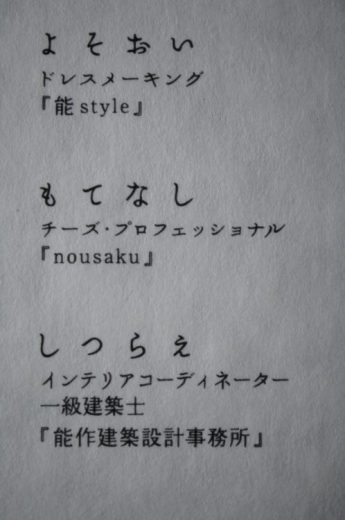 よそおい
ドレスメーキング
『能style』
もてなし
チーズ・プロフェッショナル
『nousaku』
しつらえ
インテリアコーディネーター
一級建築士
『能作建築設計事務所』